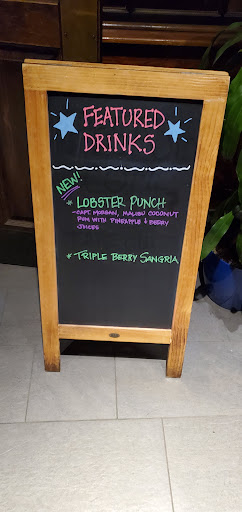 FEATURED
DRINKS
NEW!
* LOBSTER PUNCH
- CAPT. MORGAN, MALIBU COCONUT
RUM WITH PINEAPPLE & BERRY
JUICES
* TRIPLE BERRY SANGRIA